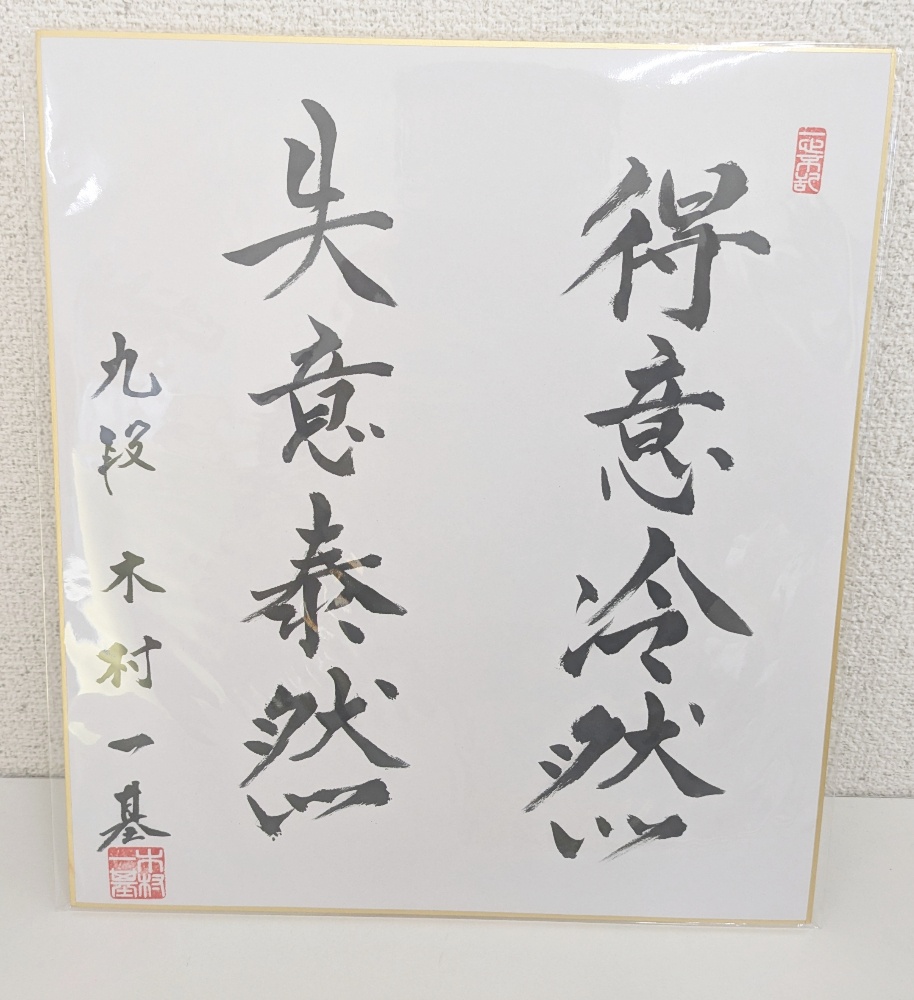 得意冷然
失意泰然
九段 木村一基
木村一基